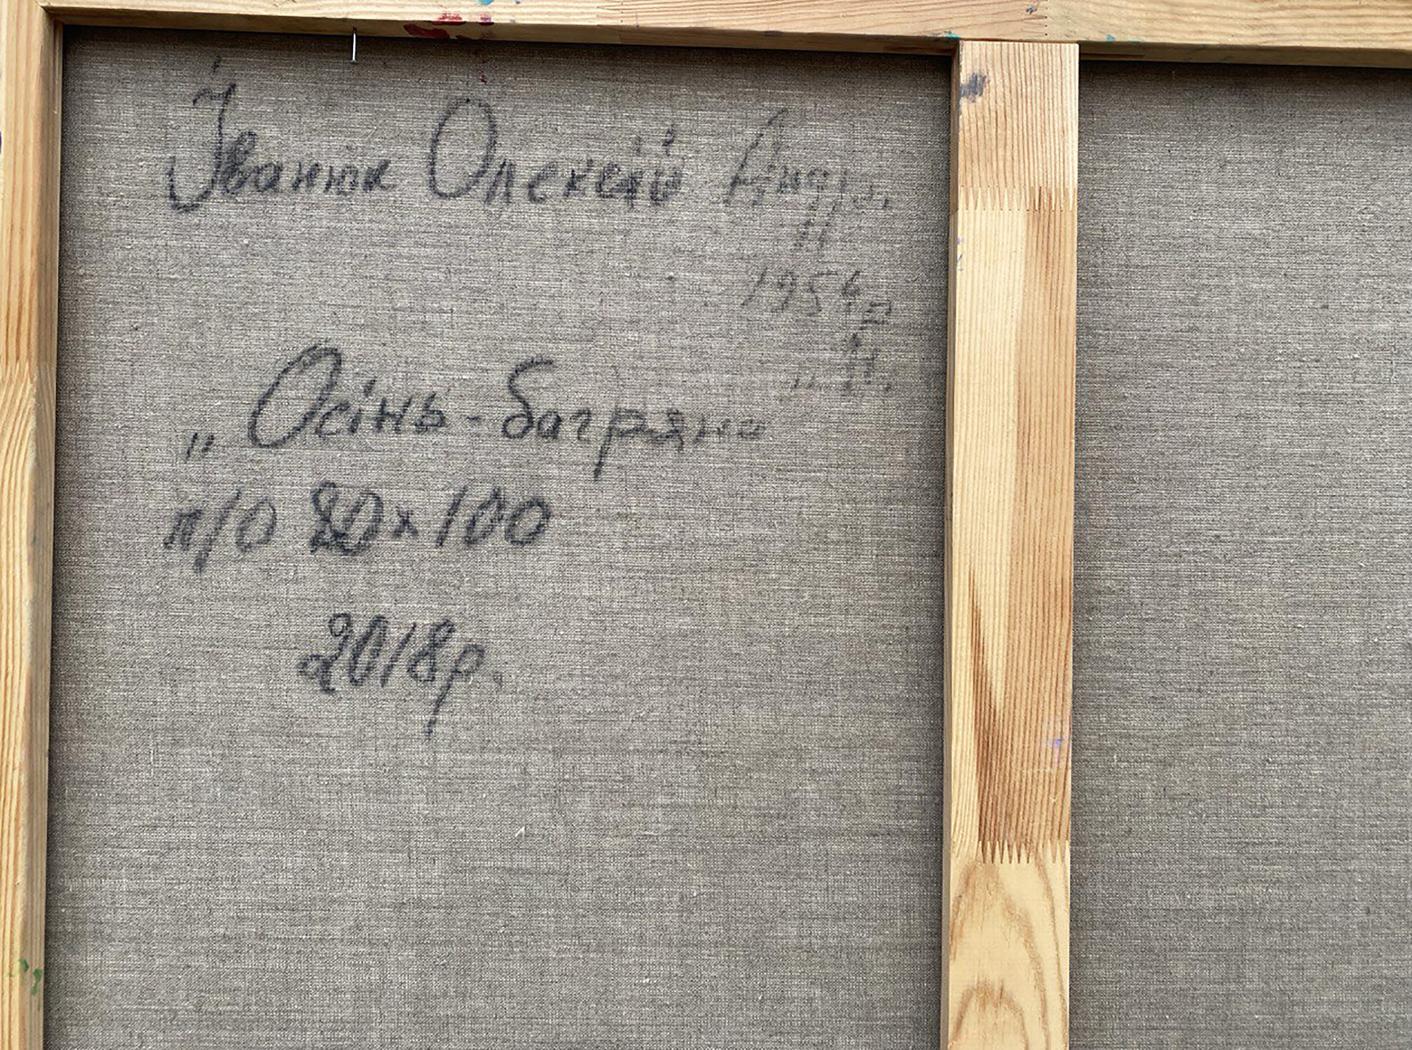 Іванюк Олексій Андр.
1954р
„Осінь-багряна
п/о 80х100
2018р.